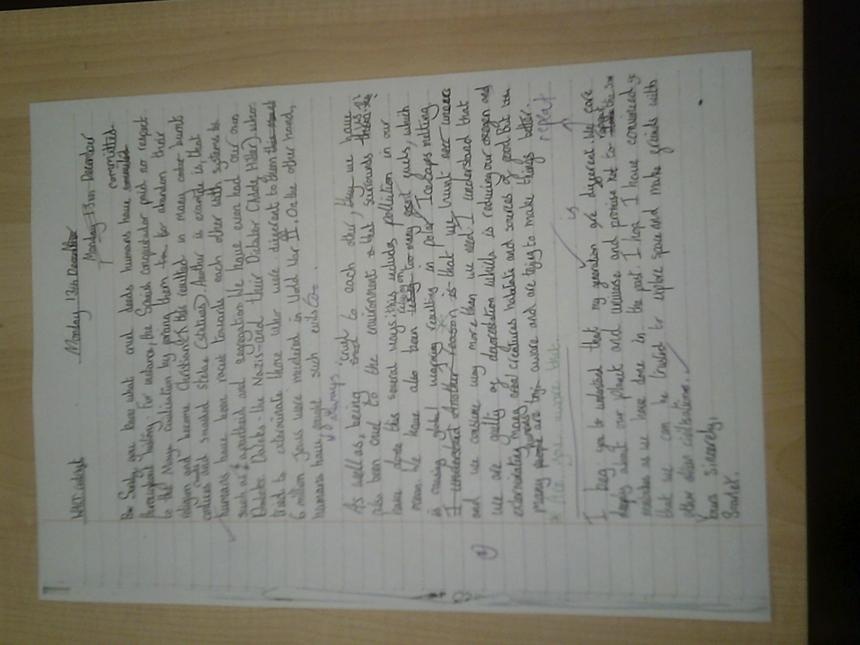 WALT: Monday 13th December
Monday 13th December
committed
Sirs, you have what cruel deeds humans have
throughout history. For instance the Spanish conquistador paid no respect
to the Maya Civilisation by forcing them to abandon their
religion and become Christians this resulted in many burnt
codices and smashed stelae (statues) Another example is, that
humans have been racist towards each other with systems
such as apartheid and segregation. We have even had our own
Daleks - the Nazis and their Dictator (Adolf Hitler) when
tried to exterminate those who were different to them
6 million Jews were murdered in World War II. On the other hand,
humans have fought such evils
always.
As well as, being cruel to each other, we have
also been cruel to the environment that surrounds
have done this several ways: this includes pollution in our
We have also been which
is causing global warming resulting in polar Icecaps melting
I understand Another reason is that we
and we consume way more than we need I understand that
we are guilty of deforestation which is reducing our oxygen and
exterminating many creatures habitats and sources of food but
many people are aware and are trying to make things better.
repeat
Are you aware that
is
I beg you to understand that my generation are different. We care
deeply about our planet and universe and promise not to repeat the
mistakes as we have done in the past. I hope I have convinced you
that we can be trusted to explore space and make friends with
other alien civilisations.
Yours sincerely,